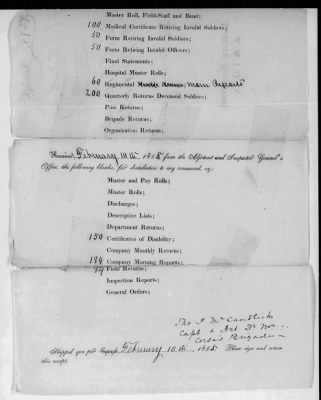 Master Roll, Field-Staff and Band;
100 Medical Certificate Retiring Invalid Soldiers;
50 Form Retiring Invalid Soldiers;
50 Form Retiring Invalid Officers;
Final Statements;
Hospital Muster Rolls;
60 Regimental Morn Reports
200 Quarterly Returns Deceased Soldiers;
Post Returns;
Brigade Returns;
Organization Returns;
Received, February 10th, 1865 from the Adjutant and Inspector General's
Office, the following blanks, for distribution to my command, vz:
Muster and Pay Rolls;
Muster Rolls;
Discharges;
Descriptive Lists;
Department Returns;
150 Certificates of Disability;
Company Monthly Returns;
184 Company Morning Reports;
Field Returns;
Inspection Reports;
General Orders;
Capt & Act
Brigade
Shipped you per February 10th, 1865. Please sign and return
this receipt.